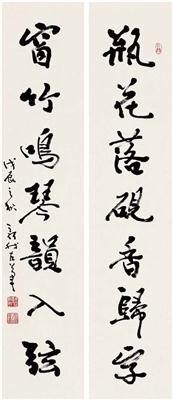 瓶花落硯香歸字
窗竹鳴琴韻入弦
戊辰之秋